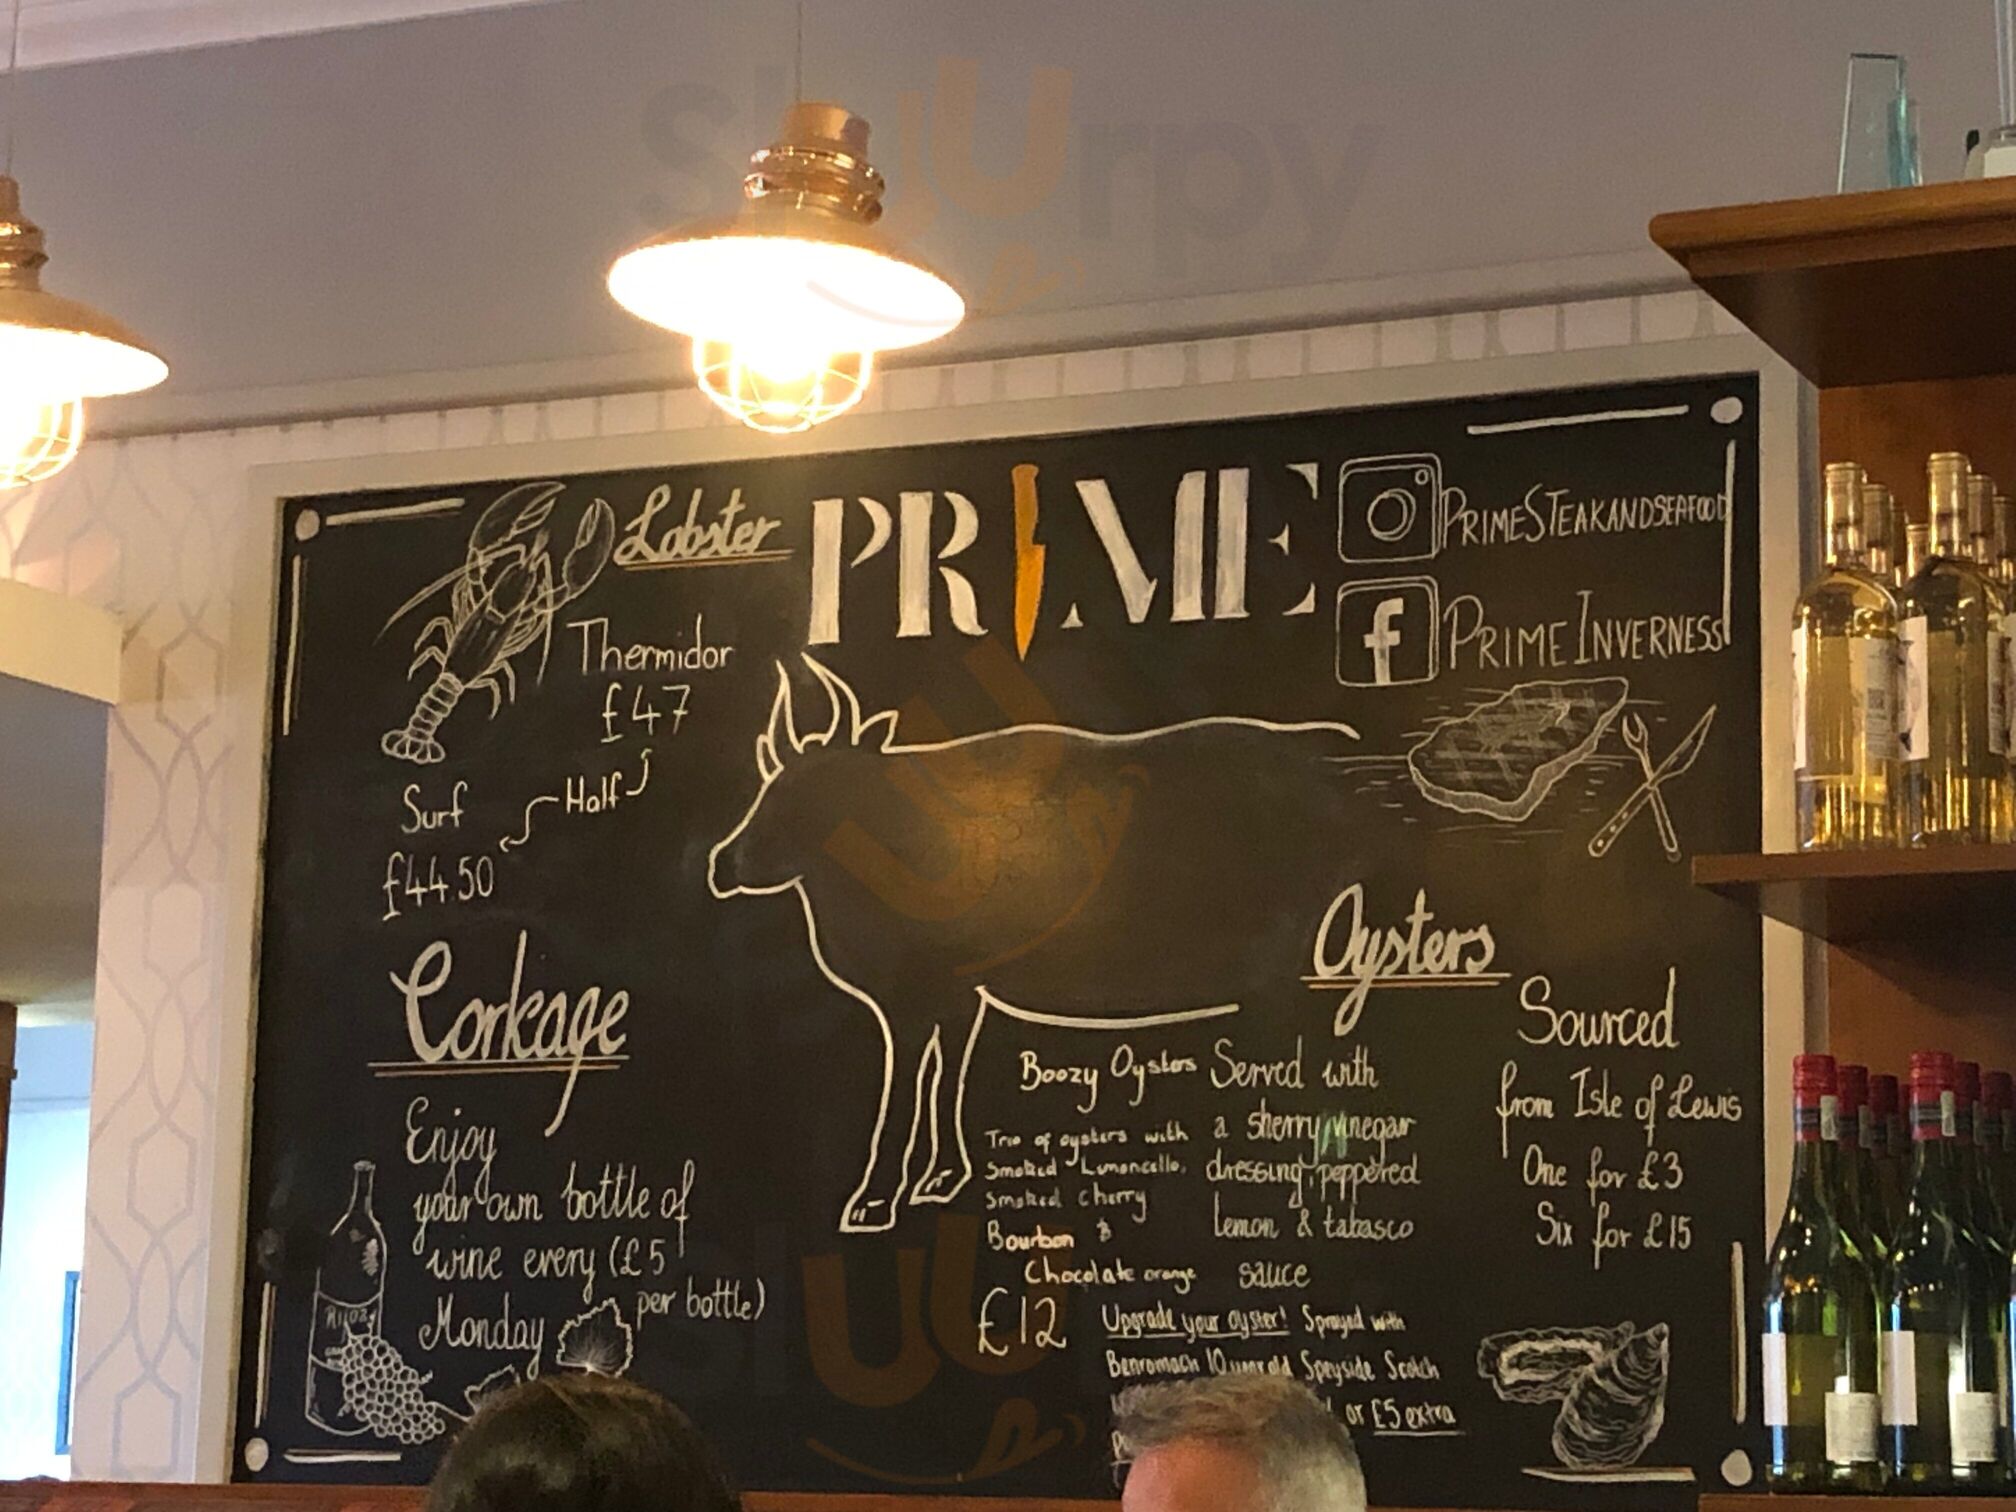 PRIME
PRIMESTEAKANDSEAFOOD
f
PRIME INVERNESS
Lobster
Thermidor
£47
Half
Surf
£44.50
Corkage
Enjoy
your own bottle of
wine every (£5
per bottle)
Monday
Oysters
Boozy Oysters
Trio of oysters with
Smoked Limoncello,
Smoked Cherry
Bourbon &
Chocolate orange
£12
Served with
a sherry vinegar
dressing, peppered
lemon & tabasco
sauce
Sourced
from Isle of Lewis
One for £3
Six for £15
Upgrade your oyster! Sprayed with
Benromach 10 year old Speyside Scotch
or £5 extra
slurpy